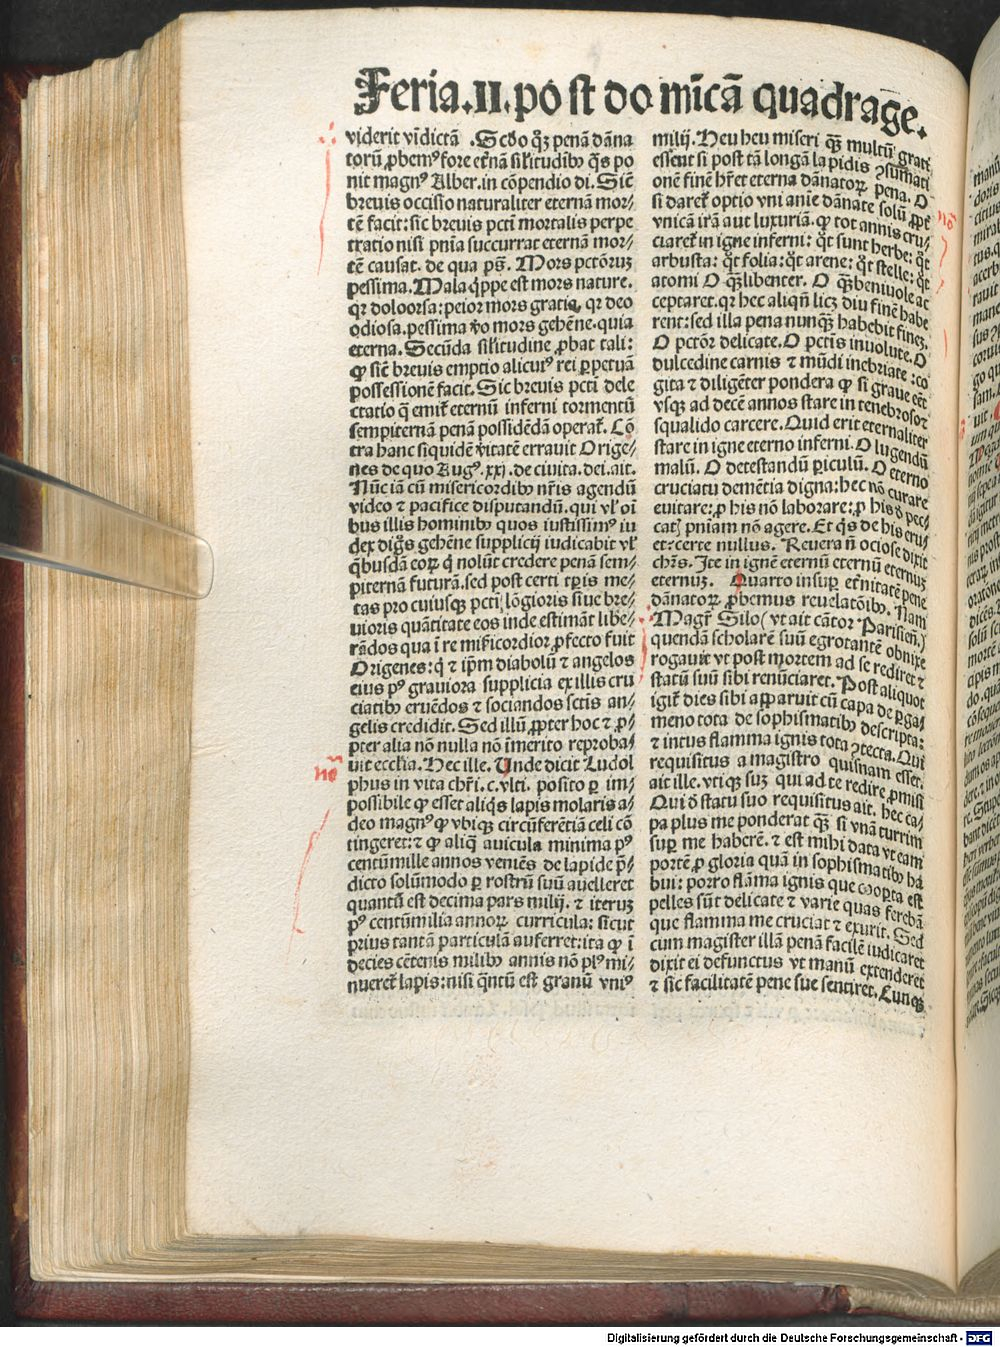 Feria.II.post domĩcã quadrage.
viderit vĩdictã .Scďo qꝫ penã dãna
torũ ꝓbemꝰ fore et̃nã sil̃itudibꝰ q̃s po
nit magnꝰ Alber.in cõpendio di. Sic̃
brevis occisio naturaliter eternã mor⸗
tẽ facit: sic brevis pct̃i mortalis perpe
tratio nisi pnĩa succurrat eternã mor⸗
tẽ causat. de qua pˢ. Mors pctõruꝫ
pessima. Mala q̃ppe est mors nature.
qꝛ doloorsa: peior mors gratie, qꝛ deo
odiosa. pessima ṽo mors gehẽne. quia
eterna. Secũda sil̃itudine ꝓbat tali:
ꝙ sic̃ brevis emptio alicuiꝰ rei ꝑpetuã
possessionẽ facit. Sic brevis pct̃i dele
ctatio q̃ emit̃ eternũ inferni tormentũ
sempiternã penã possidẽdã operat̃. Cõ
tra hanc siquidẽ ṽitatẽ erravit Orige⸗
nes de quo Augꝰ. xxi. de civita. dei. ait.
Nũc iã cũ misericordibꝰ nr̃is agendũ
video ⁊ pacifice disputandũ. qui vl̃ oĩ
bus illis hominibꝰ quos iustissimꝰ iu
dex dig̃s gehẽne supplicij iudicabit vl̃
q̃busdã eoꝝ q̃ nolũt credere penã sem⸗
piternã futurã. sed post certi tꝑis me⸗
tas pro cuiusqꝫ pct̃i lõgioris sive bre⸗
vioris quãtitate eos inde estimãt libe⸗
rãdos qua ĩ re mis̃icordior ꝓfecto fuit
Origenes: q̃ ⁊ ip̃m diabolũ ⁊ angelos
eius pꝰ graviora supplicia ex illis cru
ciatibꝰ eruẽdos ⁊ sociandos sctĩs an⸗
gelis credidit. Sed illũ ꝓpter hoc ⁊ ꝓ⸗
pter alia nõ nulla nõ ĩmerito reproba⸗
uit eccl̃ia. Hec ille. Unde dicit Ludol
nõ
phus in vita chr̃i. c. vlti. posito ꝑ im⸗
possibile ꝙ esset aliq̃s lapis molaris a⸗
deo magnꝰ ꝙ vbiqꝫ circũferẽtiã celi cõ
tingeret: ⁊ ꝙ aliq̃ avicula minima pꝰ
centũmille annos veniẽs de lapide p̃⸗
dicto solũmodo ꝑ rostrũ suũ auelleret
quantũ est decima pars milij. ⁊ iteruꝫ
pꝰ centũmilia annoꝝ curricula: sicut
prius tantã particulã auferret: ita ꝙ ĩ
decies cẽtenis milibꝰ annis nõ plꝰ mi⸗
nueret̃ lapis: nisi q̃ntũ est granũ vniꝰ
milij. Heu heu miseri qꝫ̃ multũ grati
essent si post tã longã lapidis ↄsum̃ati
onẽ finẽ hr̃et eterna dãnatoꝝ pena. O
si daret̃ optio vni anĩe dãnate solũ ꝓpt̃
nõ
vnicã irã aut luxuriã. ꝙ tot annis cru⸗
ciaret̃ in igne inferni: q̃t sunt herbe: q̃t
arbusta: q̃t folia: q̃t arene: q̃t stelle: q̃t
atomi O qꝫ̃ libenter. O qꝫ̃ benivole ac
ceptaret. qꝛ hec aliqñ licꝫ diu finẽ habe
rent: sed illa pena nunqꝫ̃ habebit fineꝫ.
O pctõr delicate. O pctĩs involute. O
dulcedine carnis ⁊ mũdi inebriate: co
gita ⁊ diligẽter pondera ꝙ si grave eẽt
vsqꝫ ad decẽ annos stare in tenebroso ⁊
squalido carcere. Quid erit eternaliter
stare in igne eterno inferni. O lugendũ
malũ. O detestandũ ꝑiculũ. O eterno
cruciatu demẽtia digna: hec nõ curare
evitare: ꝓ his nõ laborare: ꝓ his ď pec⸗
catꝭ pniam nõ agere. Et q̃s de his eru⸗
et: certe nullus. Revera ñ ociose dixit
chr̃s. Ite in ignẽ eternũ eternũ eternuꝫ
eternuꝫ. Quarto insuꝑ et̃nitatẽ pene
dãnatoꝝ ꝓbemus revelatõibꝰ. Nam
Magr̃ Silo (vt ait cãtor Parisieñ.)
quendã scholarẽ suũ egrotantẽ obnixe
rogavit vt post mortem ad se rediret ⁊
statũ suũ sibi renũciaret. Post aliquot
igit̃ dies sibi apparuit cũ capa de ꝑga⸗
meno tota de sophismatibꝰ descripta:
⁊ intus flamma ignis tota ↄtecta. Qui
requisitus a magistro quisnam esset.
ait ille. vtiqꝫ suꝫ qui ad te redire ꝓmisi
Qui ď statu suo requisitus ait. hec ca⸗
pa plus me ponderat qꝫ̃ si vnã turrim
suꝑ me haberẽ. ⁊ est mihi data vt eam
portẽ ꝓ gloria quã in sophismatibꝰ ha
bui: porro flãma ignis que cooꝑta est
pelles sũt delicate ⁊ varie quas ferebã
que flamma me cruciat ⁊ exurit. Sed
cum magister illã penã facilẽ iudicaret
dixit ei defunctus vt manũ extenderet
⁊ sic facilitatẽ pene sue sentiret. Cunqꝫ
Digitalisierung gefördert durch die Deutsche Forschungsgemeinschaft - DFG